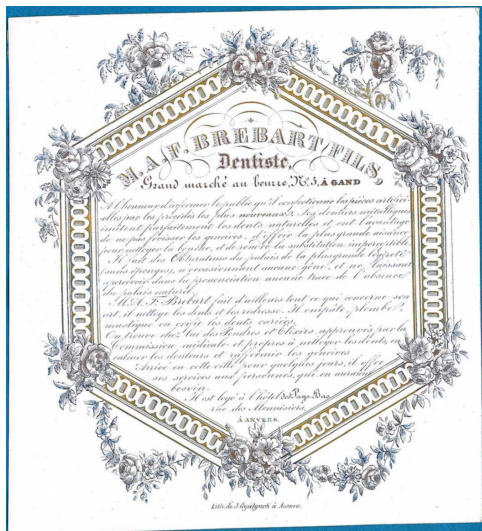 M.A.F. BREBART FILS
Dentiste,
Grand marché au beurre, N.º 5, À GAND
A l'honneur d'informer le public qu'il confectionne les pièces artificielles
par les procédés les plus nouveaux. Ses dentiers métalliques
imitent parfaitement les dents naturelles et ont l'avantage
de ne pas froisser les gencives, d'offrir la plus grande aisance
pour nettoyer la bouche, et de rendre la substitution imperceptible.
Il fait des Obturateurs du palais de la plus grande légèreté
(sans éponges), n'occasionnant aucune gêne, et ne laissant
apercevoir dans la prononciation aucune trace de l'absence
du palais naturel.
M.A.F. Brebart fait d'ailleurs tout ce qui concerne son
art, il nettoye les dents et les redresse. Il empâte, plombe,
mastique ou crispe les dents cariées.
On trouve chez lui des Poudres et Elixirs approuvés par la
Commission médicale et propres à nettoyer les dents, en
calmer les douleurs et raffermir les gencives.
Arrivé en cette ville pour quelques jours, il offre
ses services aux personnes qui en auraient
besoin.
Il est logé à l'hôtel des Pays-Bas
rue des Menuisiers,
À ANVERS.
Lith. de J. à Anvers.